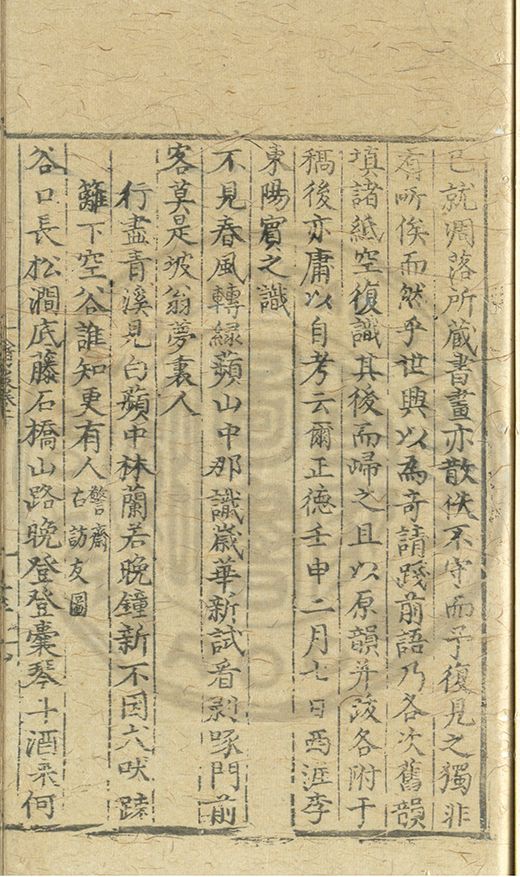 已就凋落所藏書畫亦散佚不守而予復見之獨非
有所俟而然乎世興以為奇請踐前語乃各次舊韻
填諸紙空復識其後而歸之且以原韻并跋各附于
稿後亦庸以自考云爾正德壬申二月七日西涯李
東陽賓之識
不見春風轉綠蘋山中那識歲華新試看剝啄門前
客莫是坡翁夢裏人
行盡青溪見白蘋中林蘭若晚鐘新不因犬吠踈
籬下空谷誰知更有人警齋右訪友圖
谷口長松澗底藤石橋山路晚登登囊琴斗酒來何